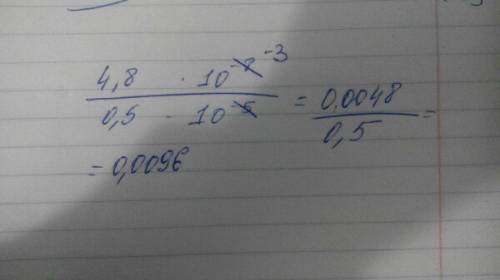 4,8 · 10⁻⁸ ⁻³
0,5 · 10⁻⁵ = 0,0048 / 0,5 =
= 0,0096